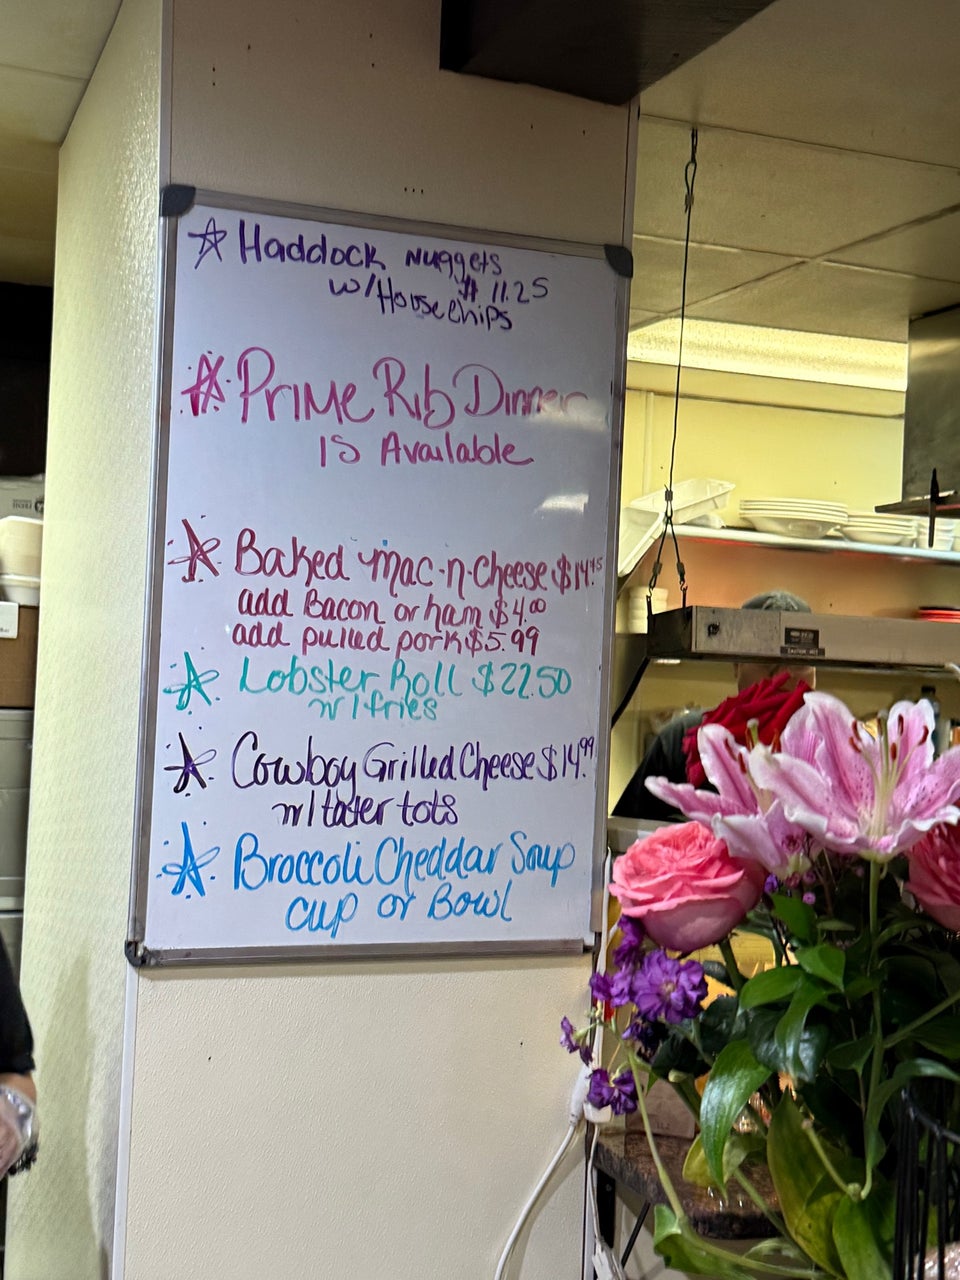 Haddock Nuggets
$ 11.25
w/House chips
Prime Rib Dinner
is Available
Baked mac-n-cheese $14.
add Bacon or ham $4.00
add pulled pork $5.99
Lobster Roll $22.50
w/fries
Cowboy Grilled Cheese $14.99
w/tater tots
Broccoli Cheddar Soup
cup or Bowl